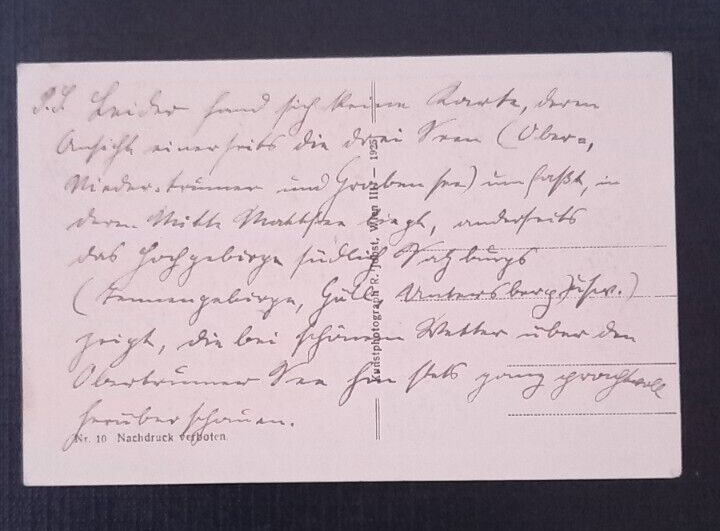 P.S. Leider fand sich keine Karte, deren
Ansicht einerseits die drei Seen (Ober-,
Nieder-trumer und Grabensee) umfaßt, in
deren Mitte Mattsee liegt, anderseits
das Hochgebirge südlich Salzburgs
(Tennengebirge, Göll, Untersberg usw.)
zeigt, die bei schönem Wetter über den
Obertrumer See hin stets ganz prachtvoll
herüberschauen.
Nr. 10 Nachdruck verboten.
Kunstphotograph R. Jobst, Wien III/ — 1925